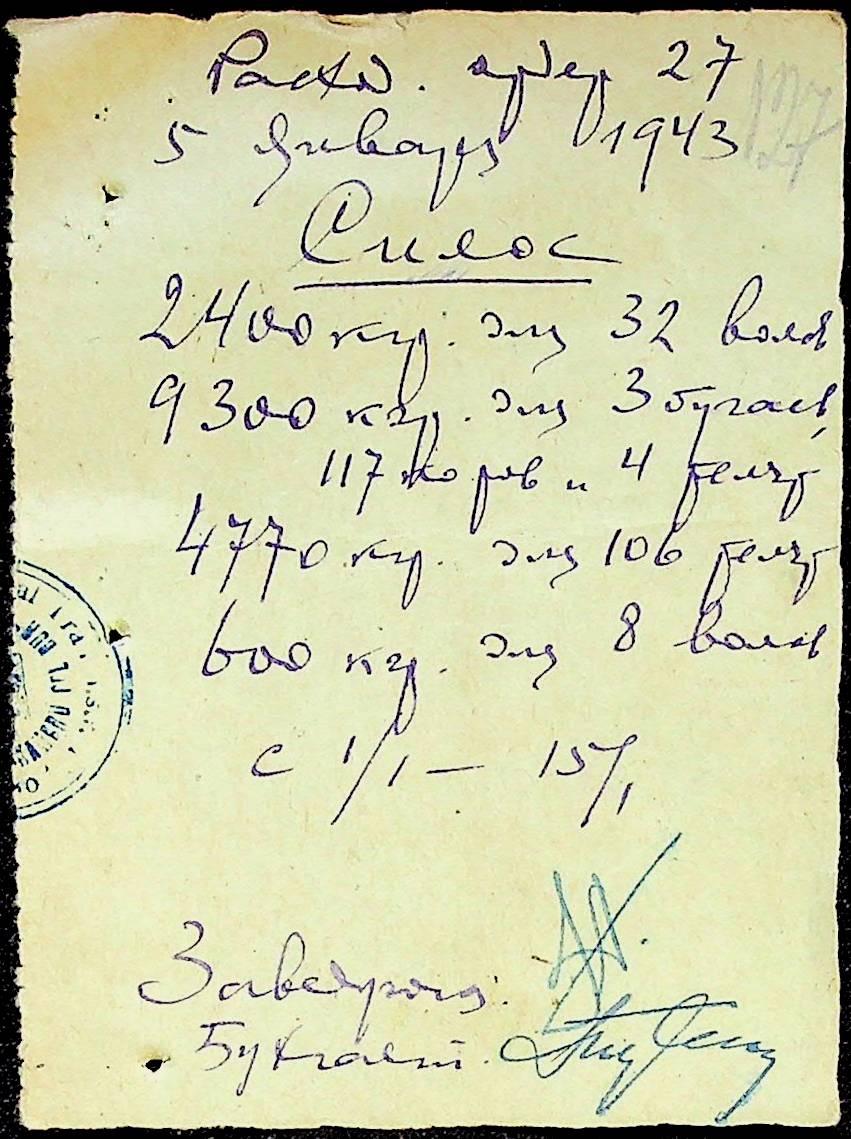 Расход. ордер 27
127
5 Января 1943
Силос
2400 кгр. для 32 волов
9300 кгр. для 3 бугаев,
117 коров и 4 телят
4770 кгр. для 106 телят
600 кгр. для 8 волов
с 1/1 — 15/1
Заведующ.
Бухгалт.